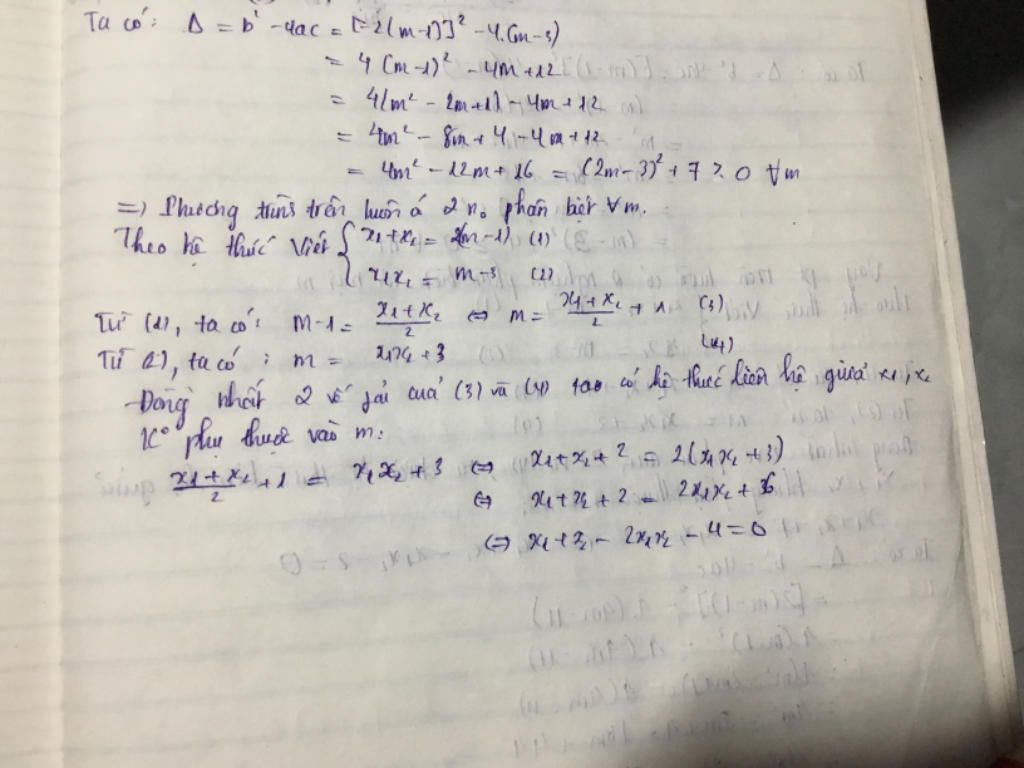 Ta có: Δ = b² - 4ac = [-2(m-1)]² - 4.(m-3)
= 4(m-1)² - 4m+12
= 4(m² - 2m+1) - 4m+12
= 4m² - 8m+4 - 4m+12
= 4m² - 12m+16 = (2m-3)² + 7 ≥ 0 ∀m
=> Phương trình trên luôn có 2 n₀ phân biệt ∀m.
Theo hệ thức Viét { x₁+x₂ = 2(m-1) (1)
x₁x₂ = m-3 (2)
Từ (1), ta có: m-1 = (x₁+x₂)/2 ⇔ m = (x₁+x₂)/2 + 1 (3)
Từ (2), ta có: m = x₁x₂+3 (4)
Đồng nhất 2 vế của (3) và (4) ta có hệ thức liên hệ giữa x₁; x₂
K° phụ thuộc vào m:
(x₁+x₂)/2 + 1 = x₁x₂+3 ⇔ x₁+x₂+2 = 2(x₁x₂+3)
⇔ x₁+x₂+2 = 2x₁x₂+6
⇔ x₁+x₂ - 2x₁x₂ - 4 = 0